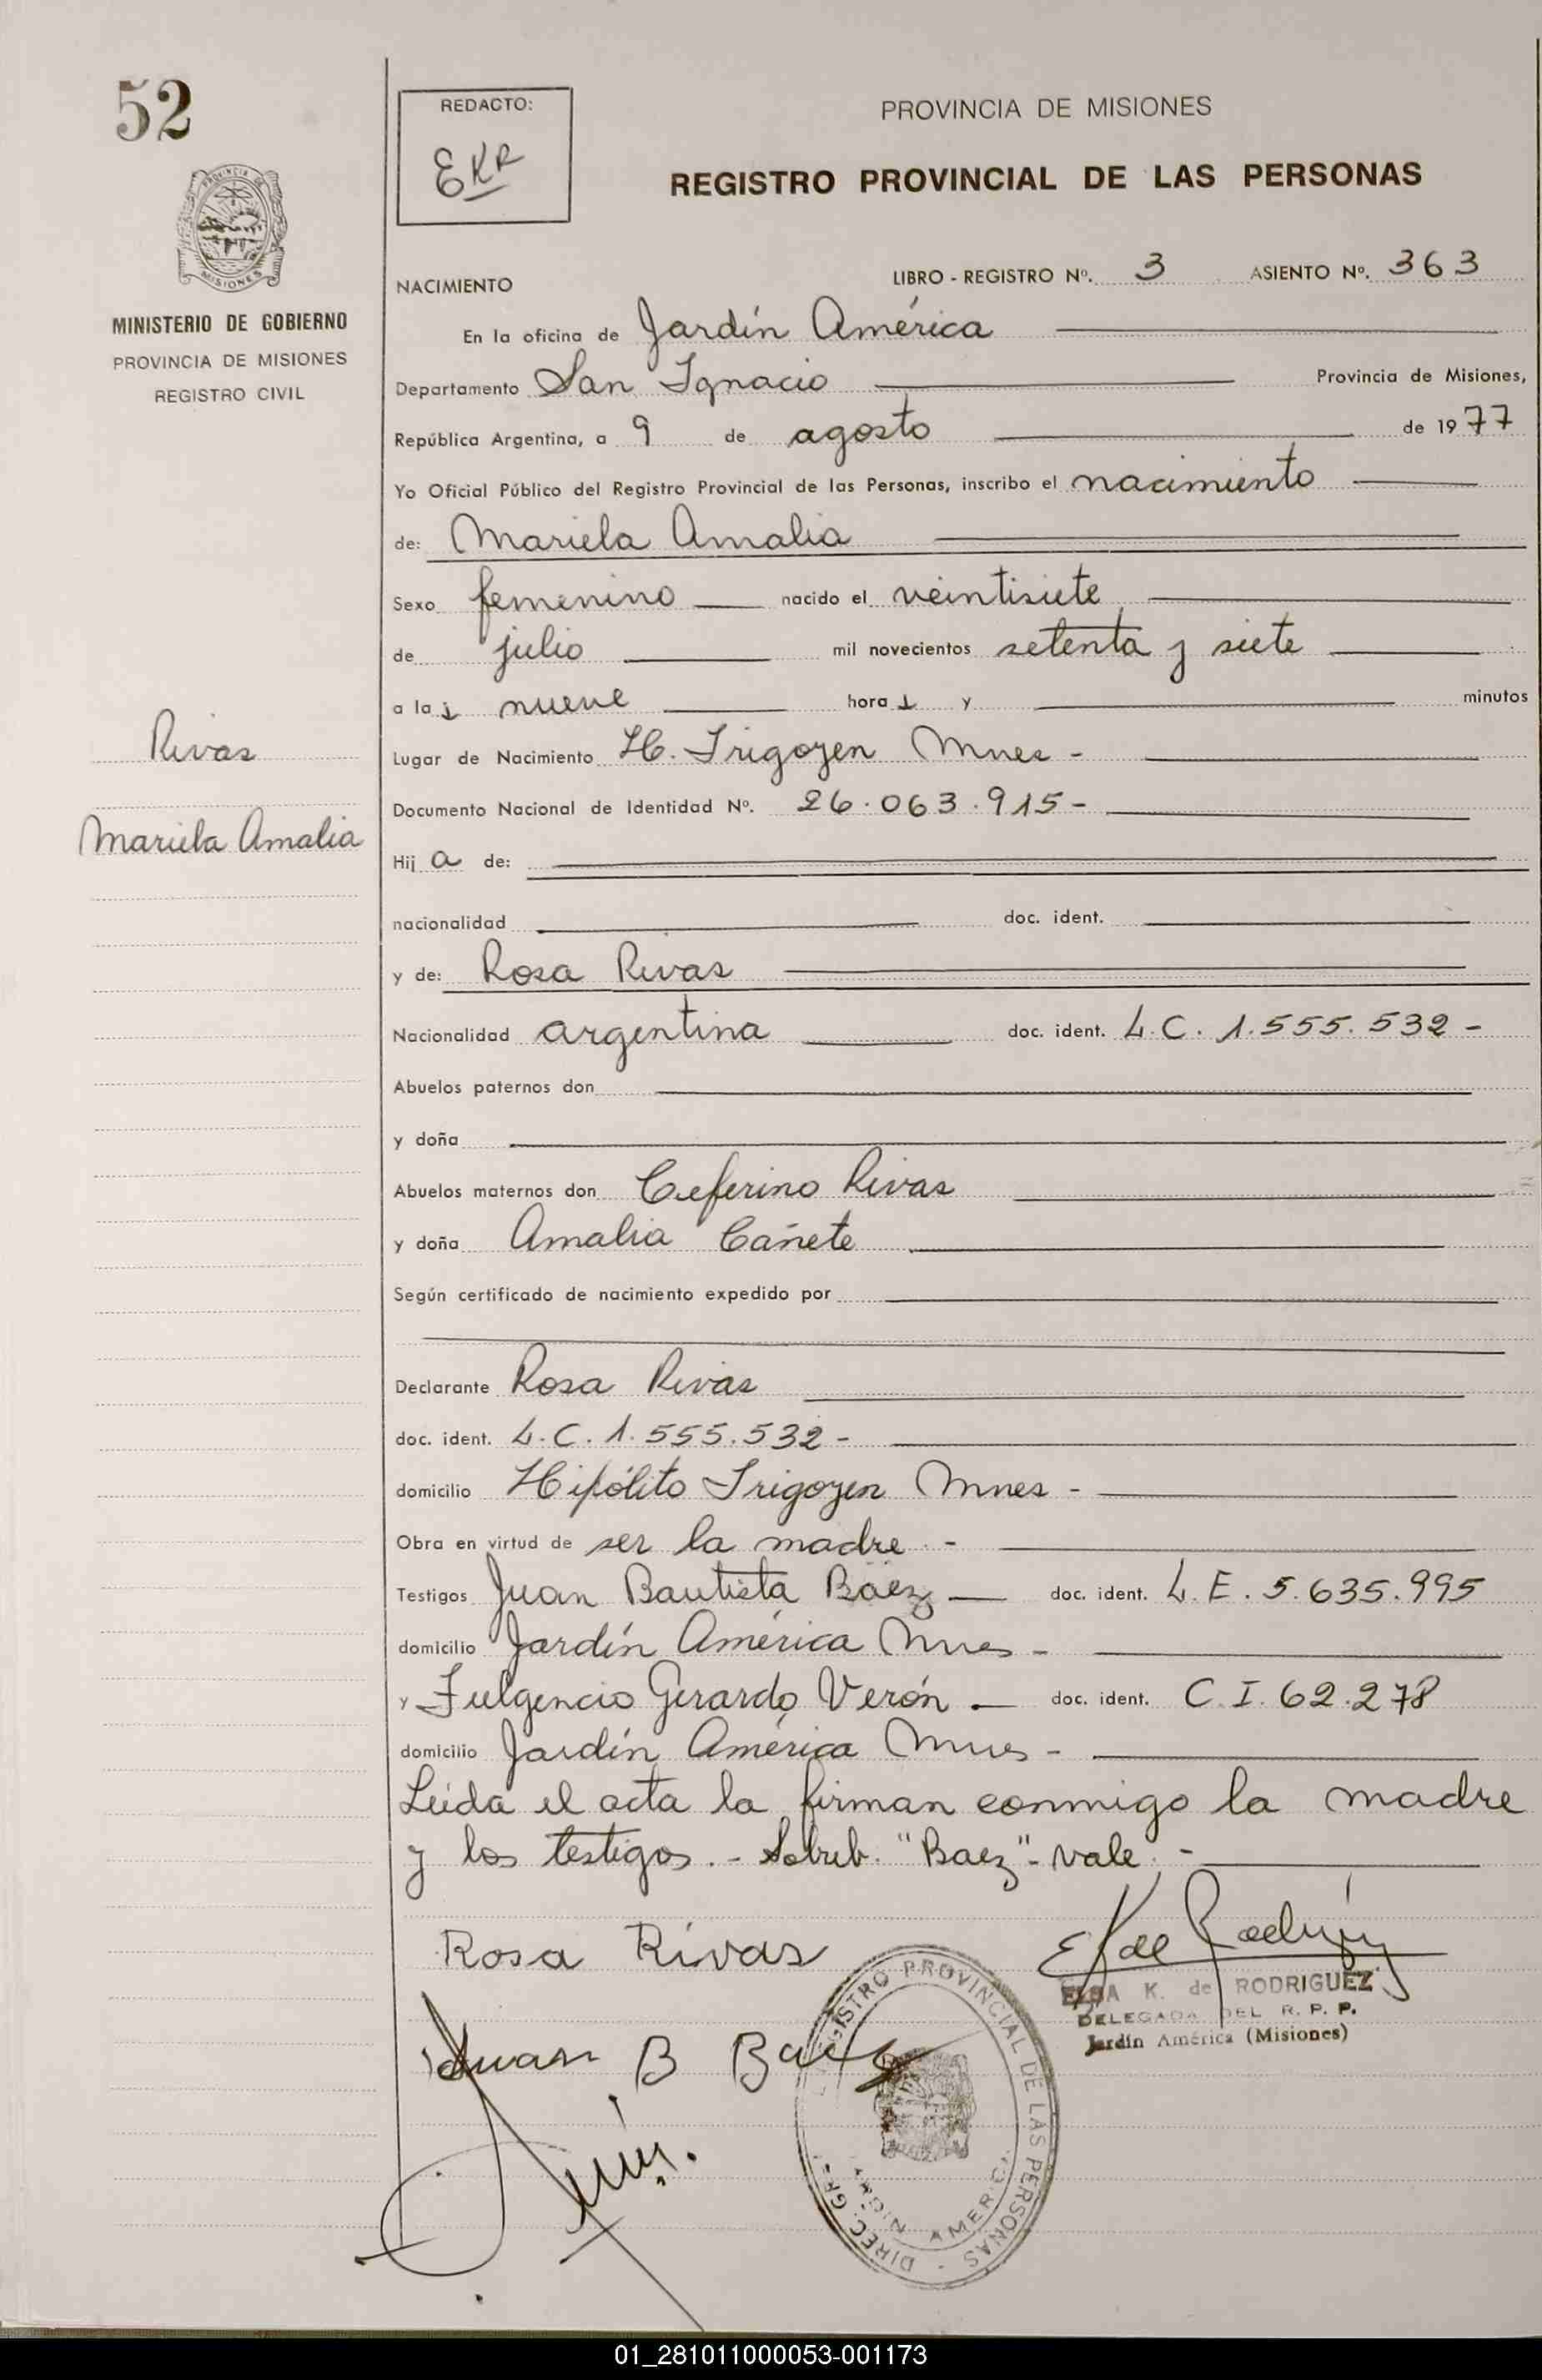 52
REDACTO:
EKR
PROVINCIA DE MISIONES
REGISTRO PROVINCIAL DE LAS PERSONAS
PROVINCIA DE
MISIONES
MINISTERIO DE GOBIERNO
PROVINCIA DE MISIONES
REGISTRO CIVIL
Rivas
Mariela Amalia
NACIMIENTO
LIBRO - REGISTRO Nº. 3 ASIENTO Nº. 363
En la oficina de Jardín América
Departamento San Ignacio Provincia de Misiones,
República Argentina, a 9 de agosto de 1977
Yo Oficial Público del Registro Provincial de las Personas, inscribo el nacimiento
de: Mariela Amalia
Sexo femenino nacido el veintisiete
de julio mil novecientos setenta y siete
a la s nueve hora s y minutos
Lugar de Nacimiento H. Irigoyen Mnes -
Documento Nacional de Identidad Nº. 26.063.915-
Hij a de:
nacionalidad doc. ident.
y de: Rosa Rivas
Nacionalidad argentina doc. ident. L.C. 1.555.532-
Abuelos paternos don
y doña
Abuelos maternos don Ceferino Rivas
y doña Amalia Cañete
Según certificado de nacimiento expedido por
Declarante Rosa Rivas
doc. ident. L.C. 1.555.532-
domicilio Hipólito Irigoyen Mnes -
Obra en virtud de ser la madre -
Testigos Juan Bautista Báez doc. ident. L.E. 5.635.995
domicilio Jardín América Mnes -
y Fulgencio Gerardo Verón doc. ident. C.I. 62.278
domicilio Jardín América Mnes -
Leída el acta la firman conmigo la madre
y los testigos.- Sobreb. "Baez"- vale.-
Rosa Rivas
E K de Rodríguez
ELBA K. de RODRIGUEZ
DELEGADA DEL R. P. P.
Jardín América (Misiones)
Juan B Baez
REGISTRO PROVINCIAL DE LAS PERSONAS - DIREC. GRAL.
JARDIN AMERICA
01_281011000053-001173